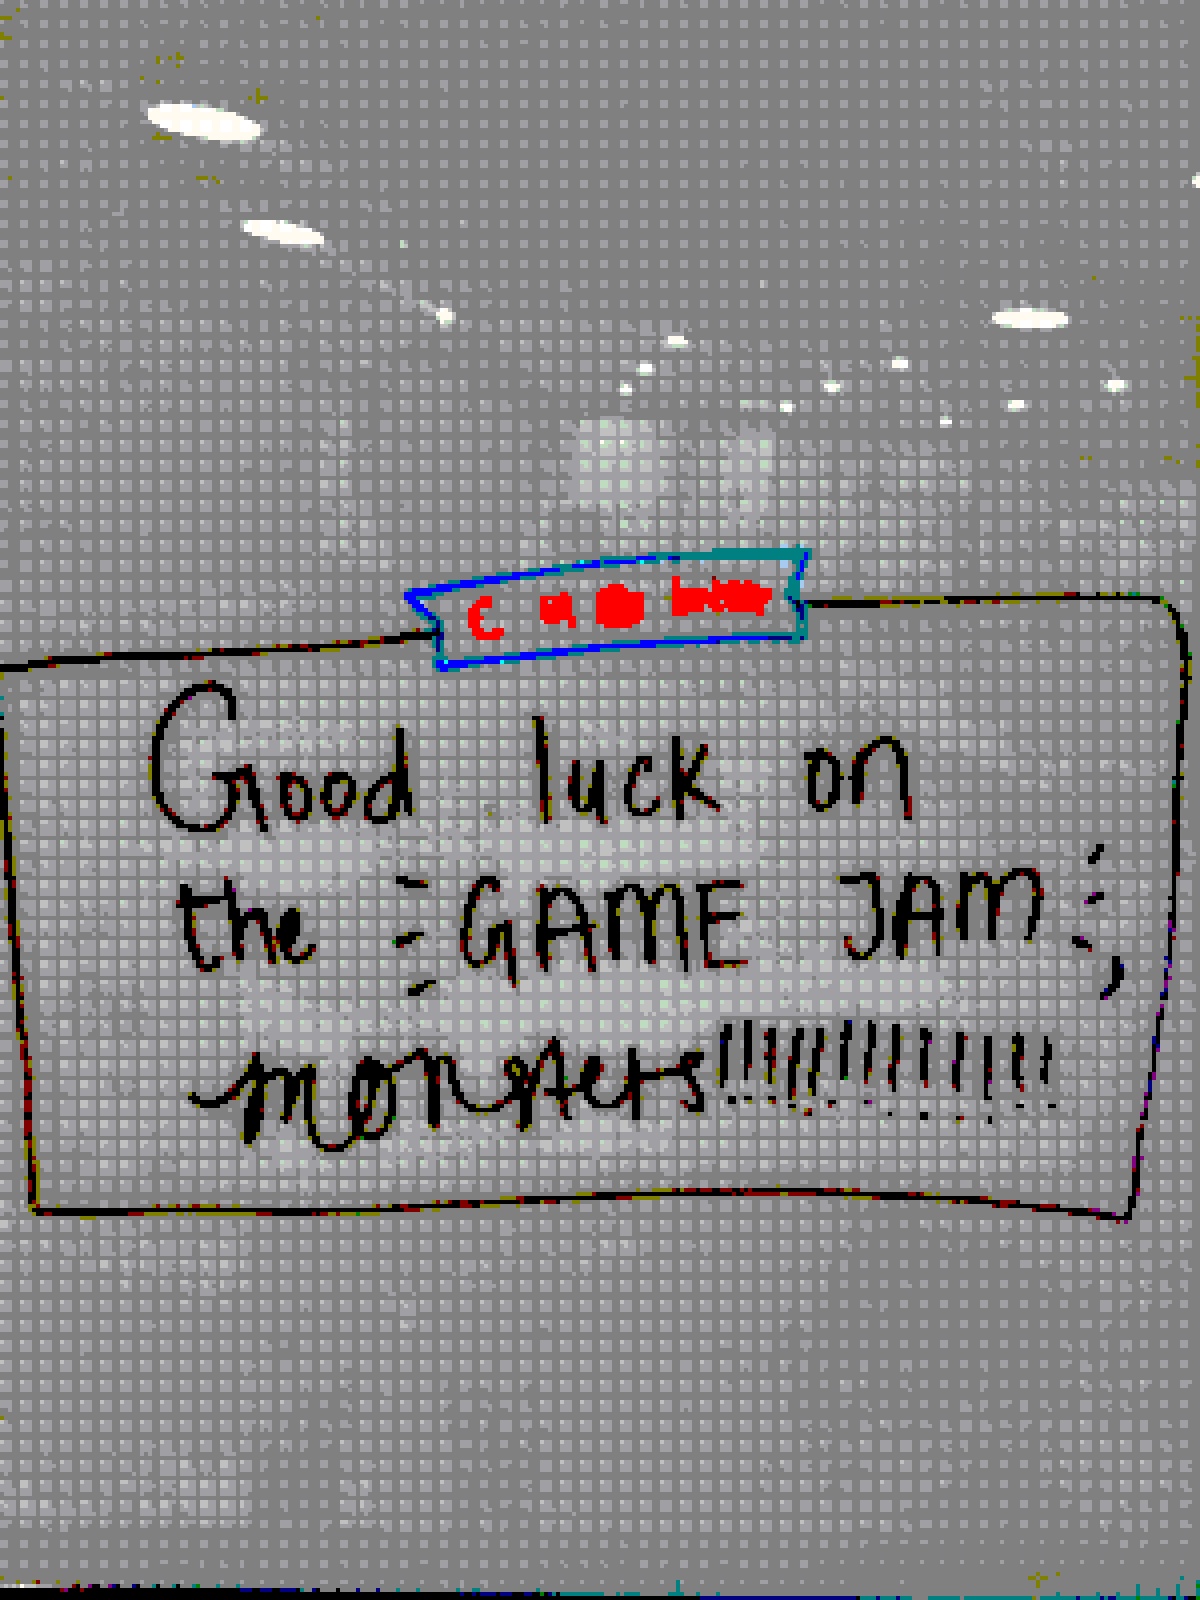 Good luck on
the GAME JAM,
monsters!!!!!!!!!!!!!!